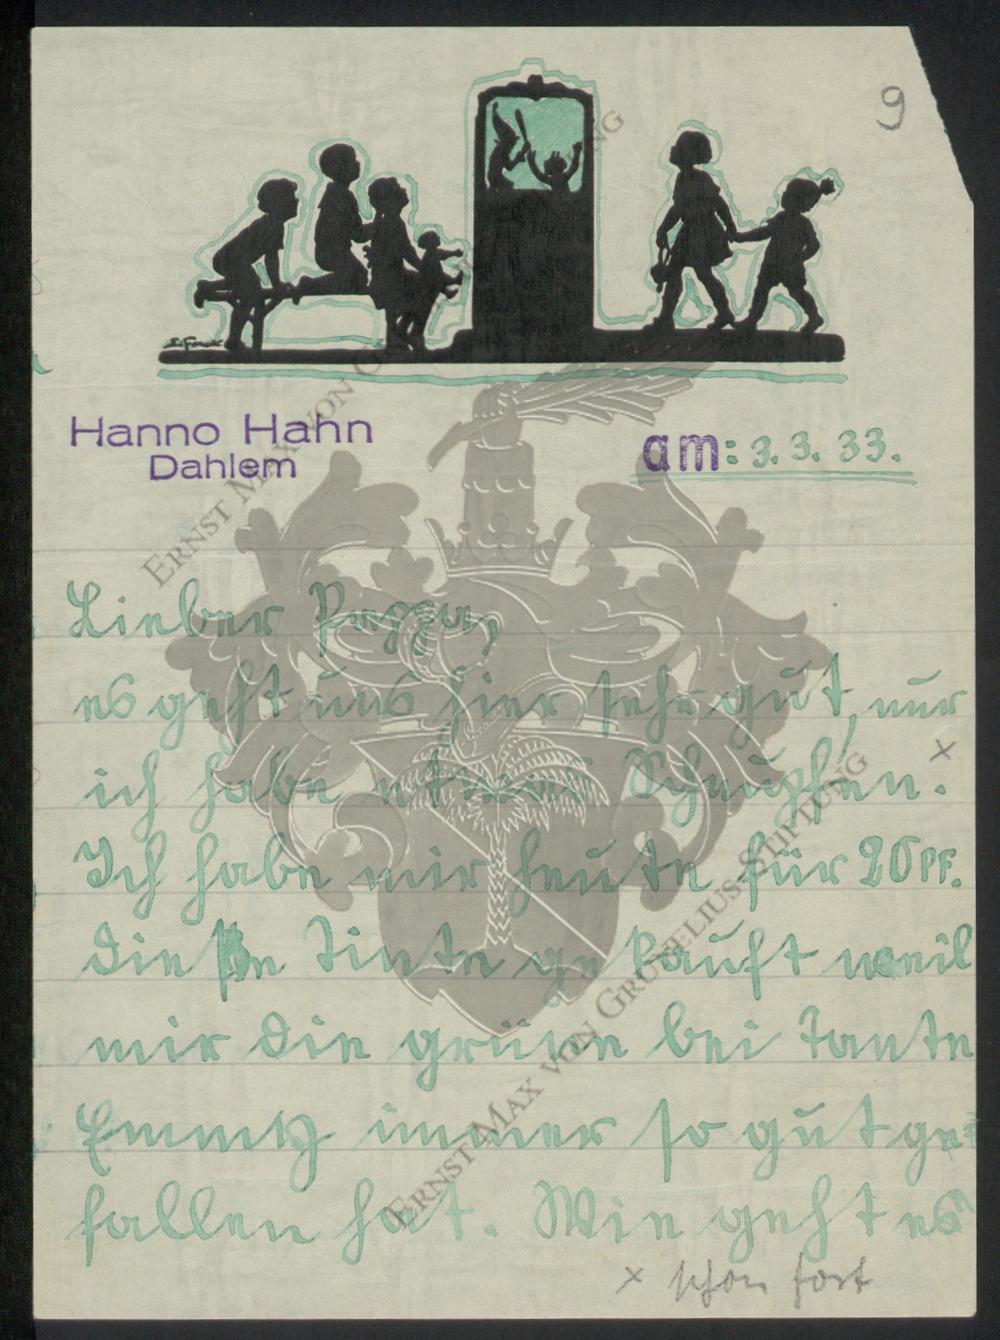 9
Hanno Hahn
Dahlem
am: 3. 3. 33.
Lieber Pappa,
es geht uns hier sehr gut, nur
ich habe etwas Schnupfen. ×
Ich habe mir heute für 20 Pf.
diese Tinte gekauft weil
mir die grüne bei Tante
immer so gut ge-
fallen hat. Wie geht es
× schon fort
ERNST MAX VON GRUNELIUS-STIFTUNG
ERNST MAX VON